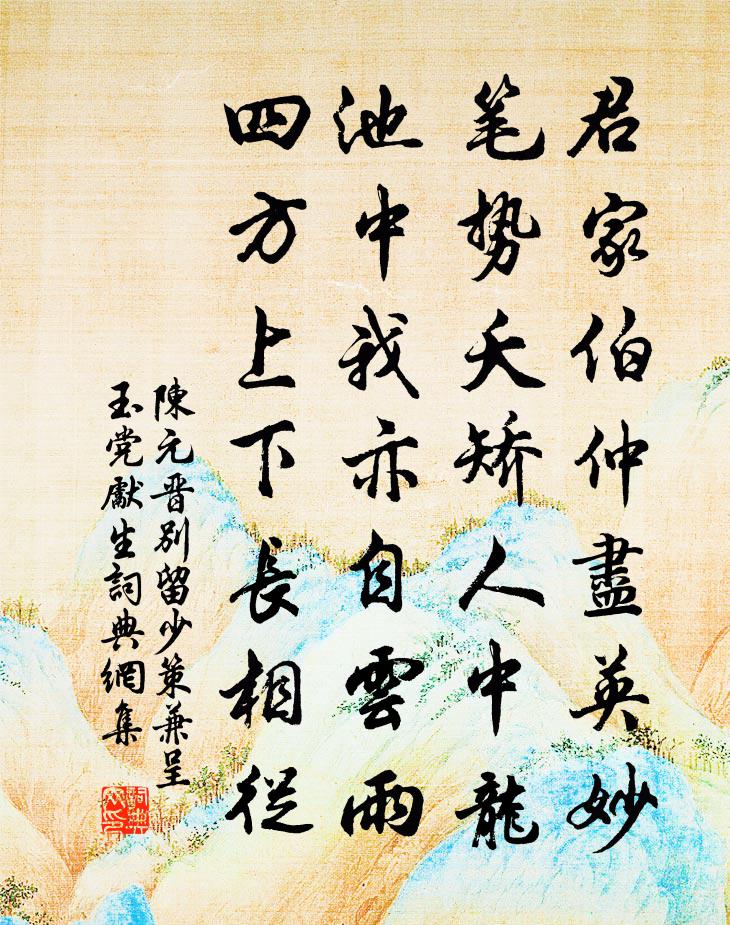 君家伯仲盡英妙
笔势夭矫人中龍
池中我亦自雲雨
四方上下長相從
陳元晋別留少策兼呈
玉党獻生詞典網集